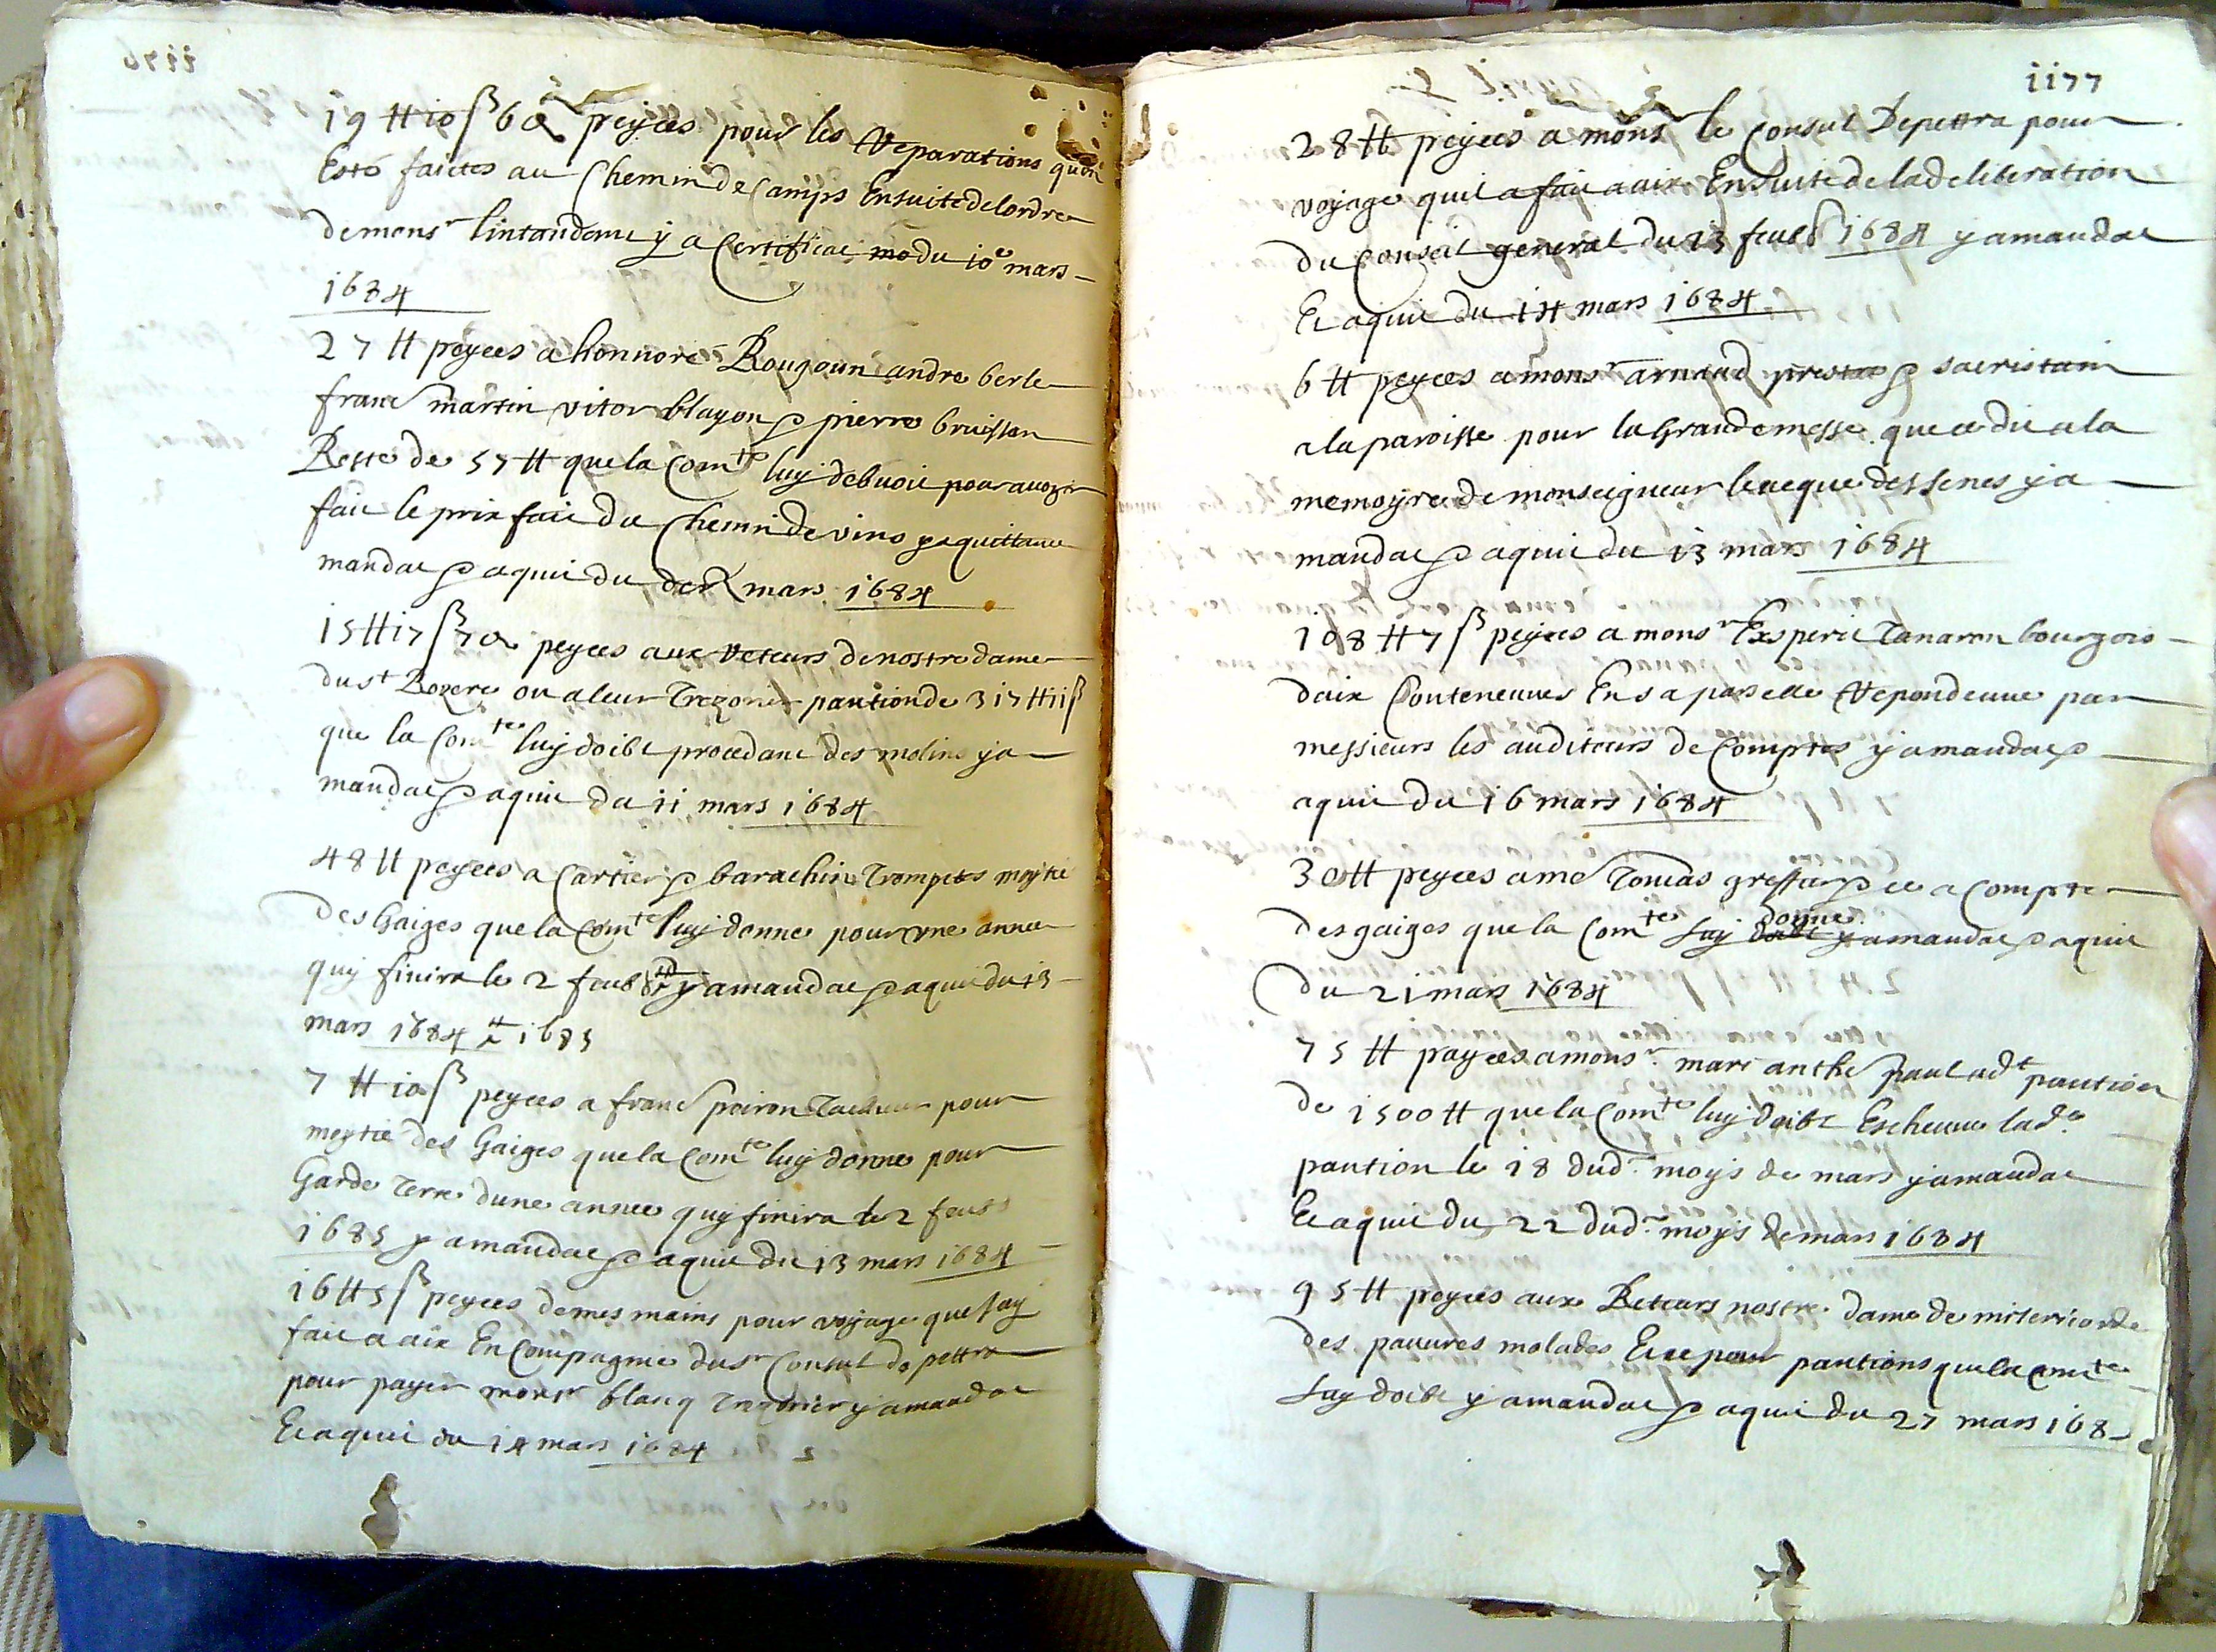 19 tt 10 ß 6 d peyees pour les Reparations quon
Esté faictes au Chemin de Camps Ensuite de lordre
de monsr lintandant y a Certificat du 10e mars
1684
27 tt peyees a honnoré Rougoun andre berle
franc martin vitor blayon & pierre bruissan
Reste de 57 tt que la Comte luy debuoit pour auoyr
fait le prix fait du Chemin de vins y a quittance
mandat & aquit du der mars 1684
15 tt 17 ß 7 d peyees aux Reteurs de nostre dame
du st Rozere ou a leur Trezorier pantion de 317 tt 11 ß
que la Comte luy doibt procedant des molins y a
mandat & aquit du 11 mars 1684
48 tt peyees a Cartier & barachin Trompetes moytie
des Gaiges que la Comte luy donne pour vne annee
quy finira le 2 feub y a mandat & aquit du 13
mars 1684 1685
7 tt 10 ß peyees a franc poiron pour
meytie des Gaiges que la Comte luy donne pour
Garde Terre dune annee quy finira le 2 feub
1685 y a mandat & aquit du 13 mars 1684
16 tt 5 ß peyees de mes mains pour voyage que Jay
fait a aix En Compagnie du sr Consul de pettra
pour payer monsr blanq Trezorier y a mandat
Et aquit du 14 mars 1684
1177
28 tt peyees a monsr le Consul Depettra pour
voyage quil a fait a aix Ensuite de la deliberation
du Conseil general du 13 feub 1684 y a mandat
Et aquit du 14 mars 1684
6 tt peyees a monsr arnaud prestre & sacristain
a la paroisse pour la Grande messe que a dit a la
memoyre de monseigneur leueque des senes y a
mandat & aquit du 13 mars 1684
108 tt 7 ß peyees a monsr Exsperit Tanaron bourgois
daix Contenenues En sa parselle Repondeuue par
messieurs les auditeurs de Comptes y a mandat &
aquit du 16 mars 1684
30 tt peyees a me Tomas greffier & ce a Compte
des gaiges que la Comte luy donne y a mandat & aquit
du 21 mars 1684
75 tt payees a monsr marc anthe paul adt pantion
de 1500 tt que la Comte luy doibt Escheuue lade
pantion le 18 dud moys de mars y a mandat
Et aquit du 22 dud moys de mars 1684
95 tt peyees aux Reteurs nostre dame de misericorde
des pauures malades Et ce pour pantions que la Comte
luy doibt y a mandat & aquit du 27 mars 168